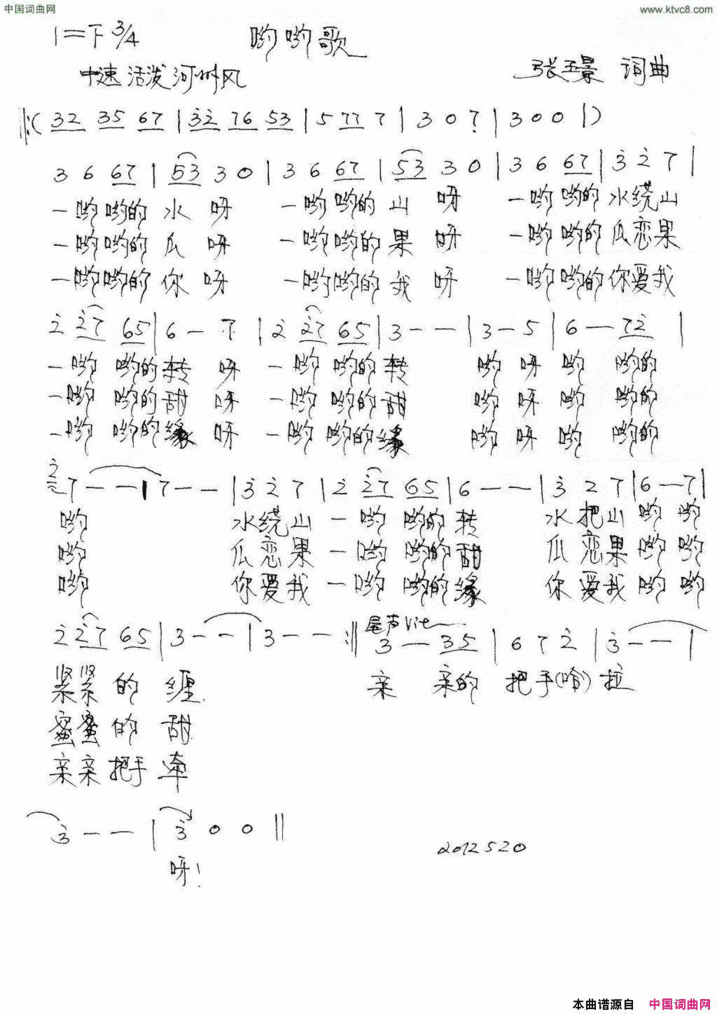 中国词曲网
www.ktvc8.com
1=下 3/4 哟哟歌
中速 活泼 河州风 张玉景 词曲
‖:( 32 35 67 | 32 76 53 | 5 77 7 | 3 0 7 | 3 0 0 | )
3 6 67 | 53 3 0 | 3 6 67 | 53 3 0 | 3 6 67 | 3 2 7 |
一哟哟的 水 呀 一哟哟的 山 呀 一哟哟的 水绕山
一哟哟的 瓜 呀 一哟哟的 果 呀 一哟哟的 瓜恋果
一哟哟的 你 呀 一哟哟的 我 呀 一哟哟的 你爱我
2 27 65 | 6 — 7 | 2 27 65 | 3 — — | 3 — 5 | 6 — 72 |
一哟 哟的转 呀 一哟 哟的转 哟 呀 哟 哟的
一哟 哟的甜 呀 一哟 哟的甜 哟 呀 哟 哟的
一哟 哟的缘 呀 一哟 哟的缘 哟 呀 哟 哟的
2 7 — — | 7 — — | 3 2 7 | 2 27 65 | 6 — — | 3 2 7 | 6 — 7 |
哟 水绕山 一哟 哟的转 水把山 哟 哟
哟 瓜恋果 一哟 哟的甜 瓜恋果 哟 哟
哟 你爱我 一哟 哟的缘 你爱我 哟 哟
2 27 65 | 3 — — | 3 — — :‖ 尾声 3 — 35 | 6 7 2 | 3 — — |
紧紧 的 缠 亲 亲的 把手(哈)拉
蜜蜜 的 甜
亲亲 把手 牵
3 — — | 3 0 0 ‖
呀!
2012520
本曲谱源自 中国词曲网